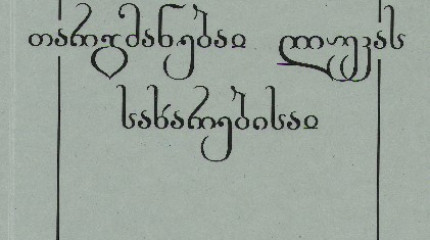 თარგმანებაჲ ლუკას
სახარებისაჲ